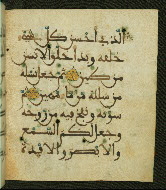 الذي أحسن كل شيء
خلقه وبدأ خلق الإنسان
من طين ثم جعل نسله
من سلالة من ماء مهين ثم
سويه ونفخ فيه من روحه
وجعل لكم السمع
والأبصار والأفئدة